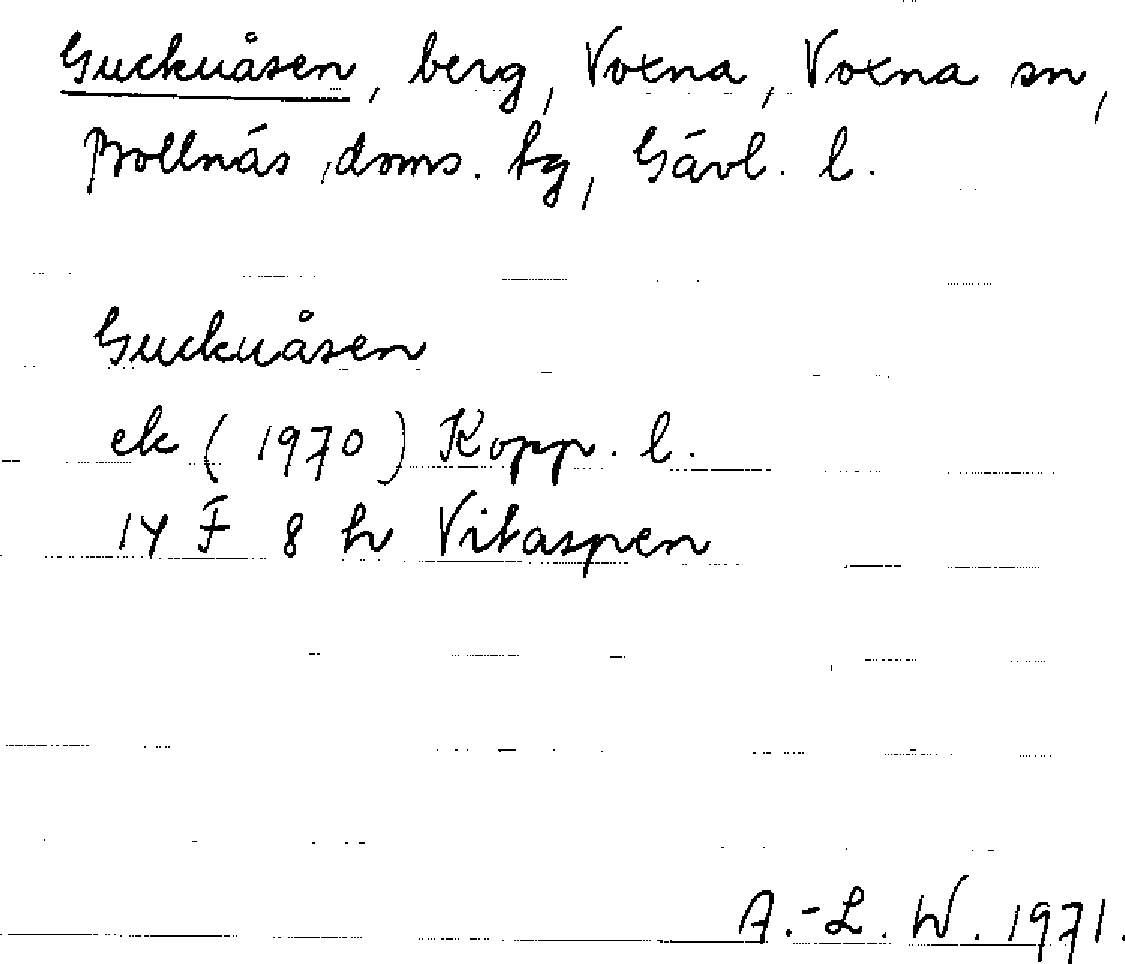 Guckuåsen, berg, Voxna, Voxna sn,
Bollnäs doms. tg, Gävl. l.
Guckuåsen
ek (1970) Kopp. l.
14 F 8 h Vitaspen
A.-L. W. 1971.